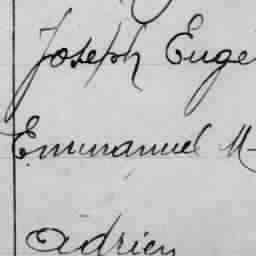 Joseph Euge
Emmanuel M
Adrien